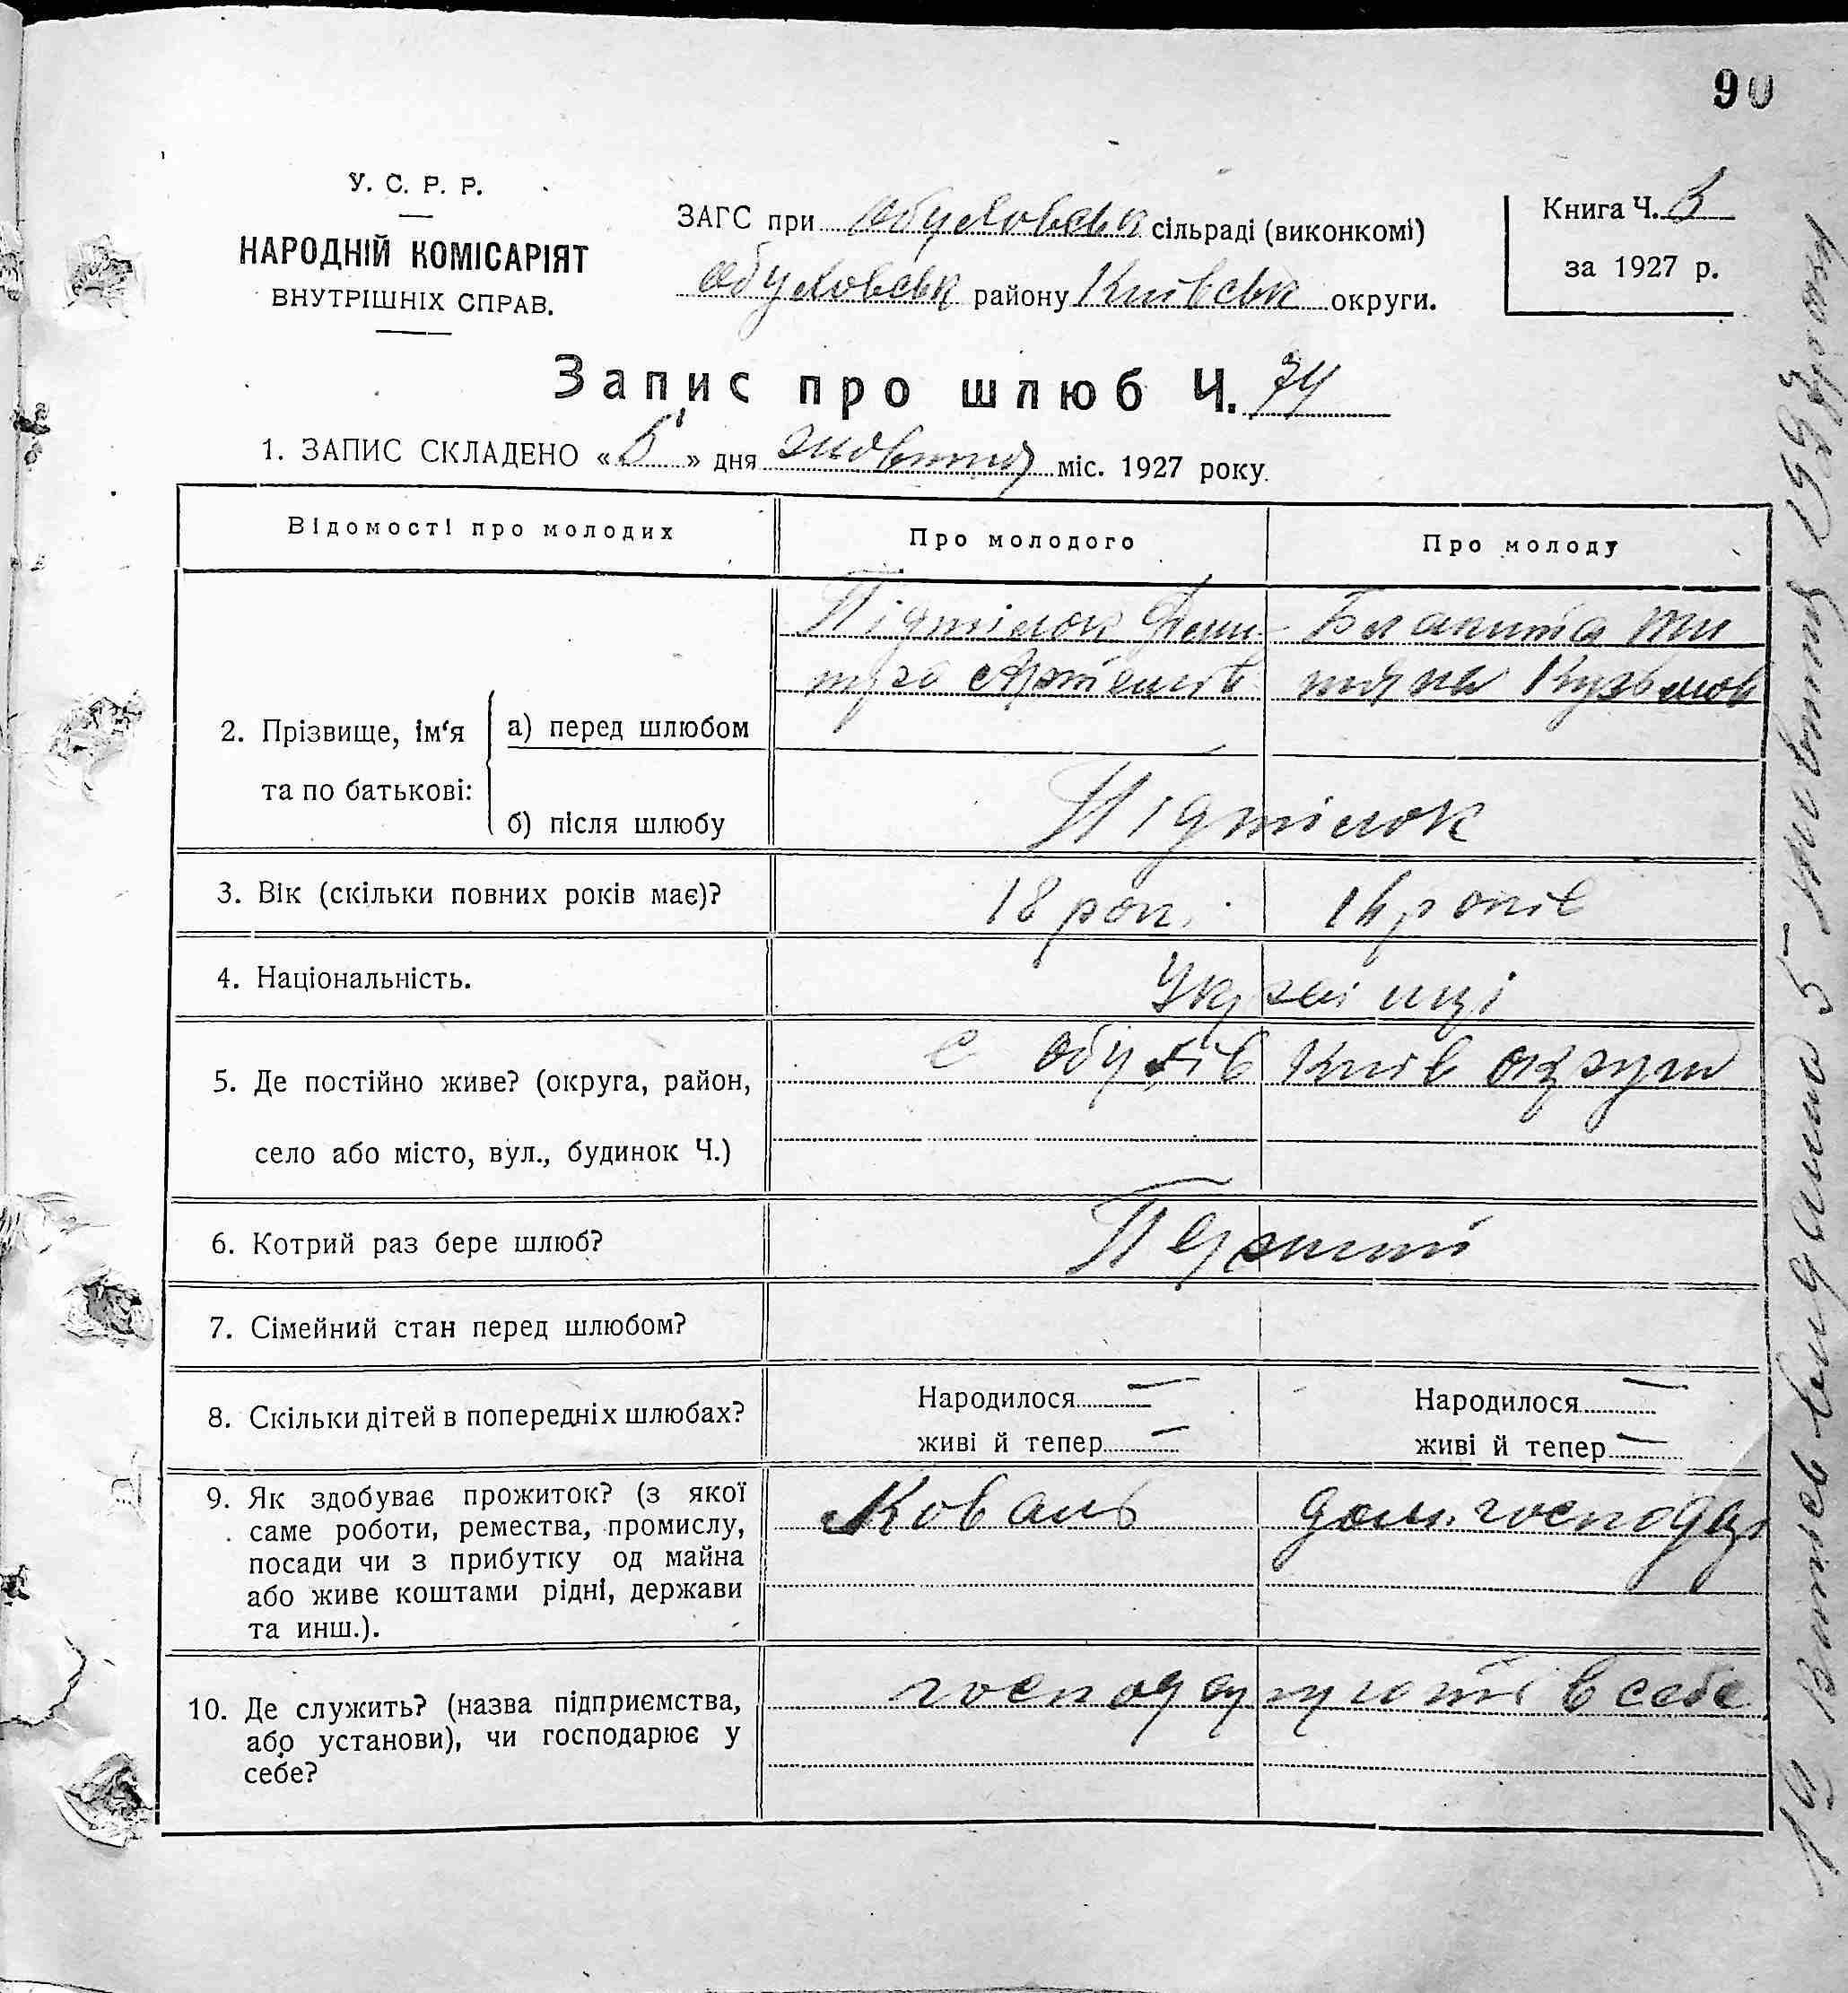 90
У. С. Р. Р.
НАРОДНІЙ КОМІСАРІЯТ
ВНУТРІШНІХ СПРАВ.
ЗАГС при Обуховськ сільраді (виконкомі)
Обуховськ району Київськ округи.
Книга Ч. 3
за 1927 р.
Запис про шлюб Ч. 74
1. ЗАПИС СКЛАДЕНО «5» дня жовтня міс. 1927 року.
Відомості про молодих Про молодого Про молоду
Підтілок Дми- Ти
тро Артемів тяна Кузьмов
2. Прізвище, ім‘я та по батькові:
а) перед шлюбом
б) після шлюбу Підтілок
3. Вік (скільки повних років має)? 18 рок. 16 років
4. Національність. Українці
5. Де постійно живе? (округа, район, с Обухів Київ округи
село або місто, вул., будинок Ч.)
6. Котрий раз бере шлюб? Перший
7. Сімейний стан перед шлюбом?
8. Скільки дітей в попередніх шлюбах? Народилося — Народилося —
живі й тепер — живі й тепер —
9. Як здобуває прожиток? (з якої
саме роботи, ремества, промислу, Коваль дом. господар
посади чи з прибутку од майна
або живе коштами рідні, держави
та инш.).
10. Де служить? (назва підприємства, господарюють в себе
або установи), чи господарює у
себе?
Витяг видано 5 жовтня 1927 року